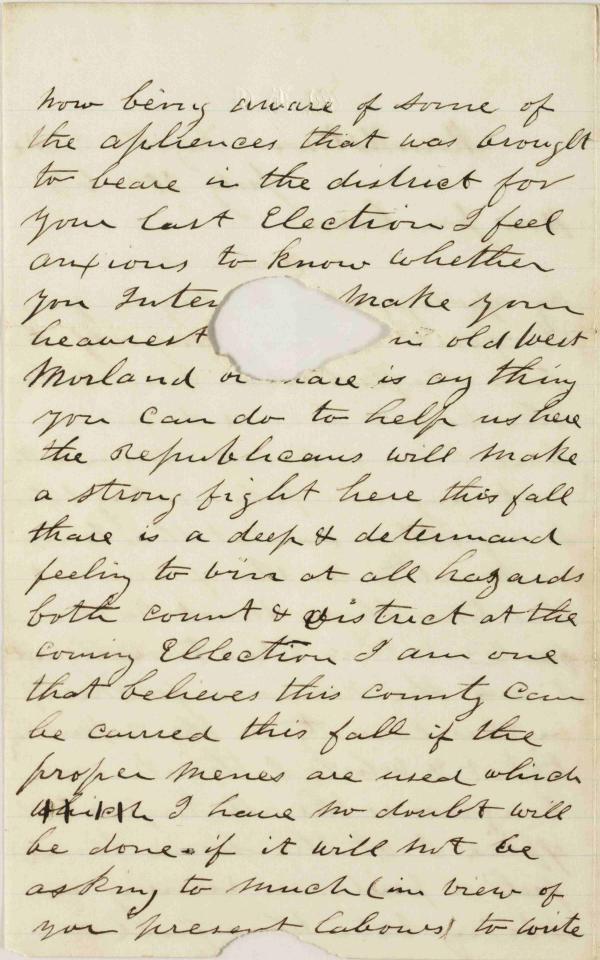 now being aware of some of
the apliences that was brought
to beare in the district for
your last Election I feel
anxious to know whether
you Inten make your
heaurest in old West
Morland or thare is any thing
you can do to help us here
the republicans will make
a strong fight here this fall
thare is a deep & determand
feeling to win at all hazards
both count & district at the
coming Ellection I am one
that believes this county can
be carred this fall if the
proper menes are used which
which I have no doubt will
be done. if it will not be
asking to much (in view of
your present labours) to write